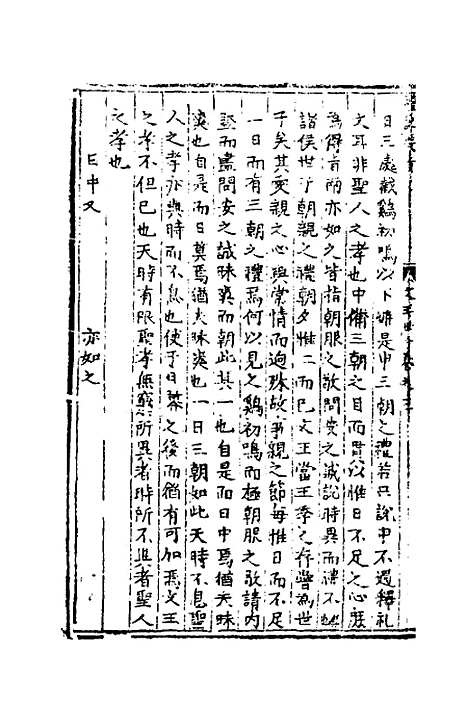 日三處截鷄初鳴以下雖是申三朝之禮若只說中不過釋礼
文耳非聖人之孝也中備三朝之目而貫以惟日不足之心庶
爲得肯兩亦如之皆指朝服之敬問安之誠說時異而禮不
諸侯世子朝親之禮朝夕惟二而已文王當王季之存嘗爲世
子矣其愛親之心與常情而逈殊故事親之節每惟日而不足
一日而有三朝之禮焉何以見之鷄初鳴而極朝服之敬請内
竪而盡問安之誠昧爽而朝此其一也自是而日中焉猶夫昧
爽也自是而日莫焉猶夫昧爽也一日三朝如此天時不息聖
人之孝亦與時而不息也使于日暮之後而猶有可加焉文王
之孝不但已也天時有限聖孝無窮所異者時所不異者聖人
之孝也
日中又 亦如之